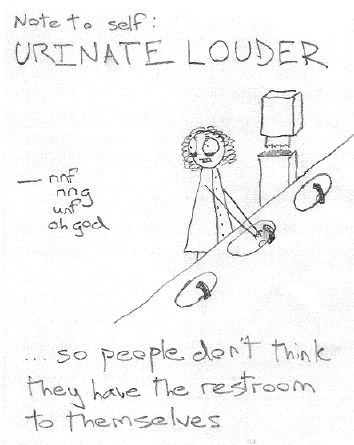 Note to self:
URINATE LOUDER
— nnf
nng
unf
oh god
... so people don't think
they have the restroom
to themselves